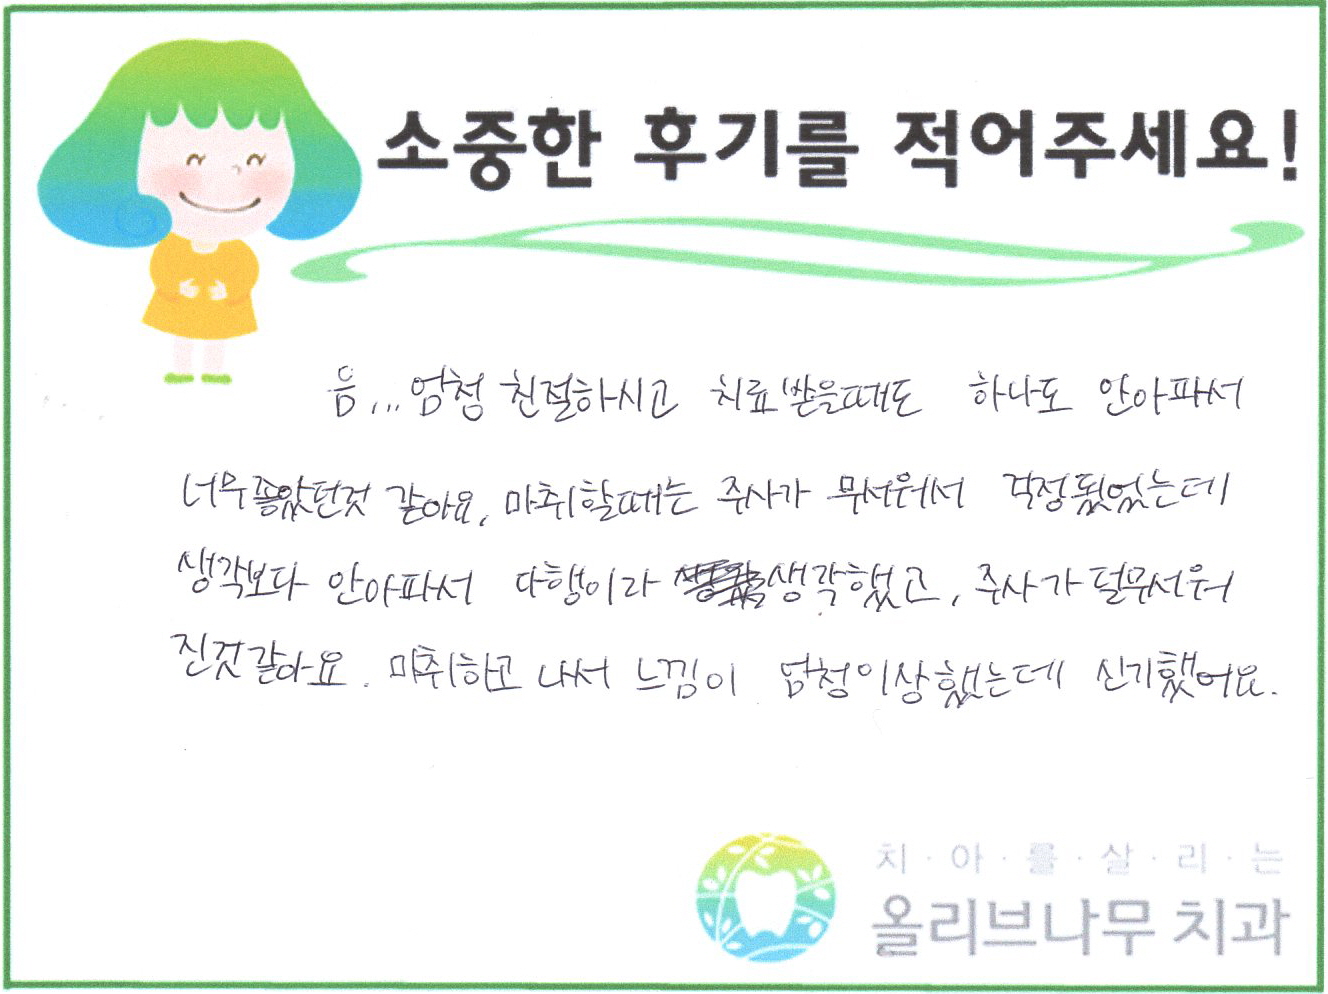 소중한 후기를 적어주세요!
음... 엄청 친절하시고 치료받을때도 하나도 안아파서
너무 좋았던것 같아요, 마취할때는 주사가 무서워서 걱정됬었는데
생각보다 안아파서 다행이라 생각했고, 주사가 덜무서워
진것 같아요. 마취하고 나서 느낌이 엄청이상했는데 신기했어요.
치·아·를·살·리·는
올리브나무 치과